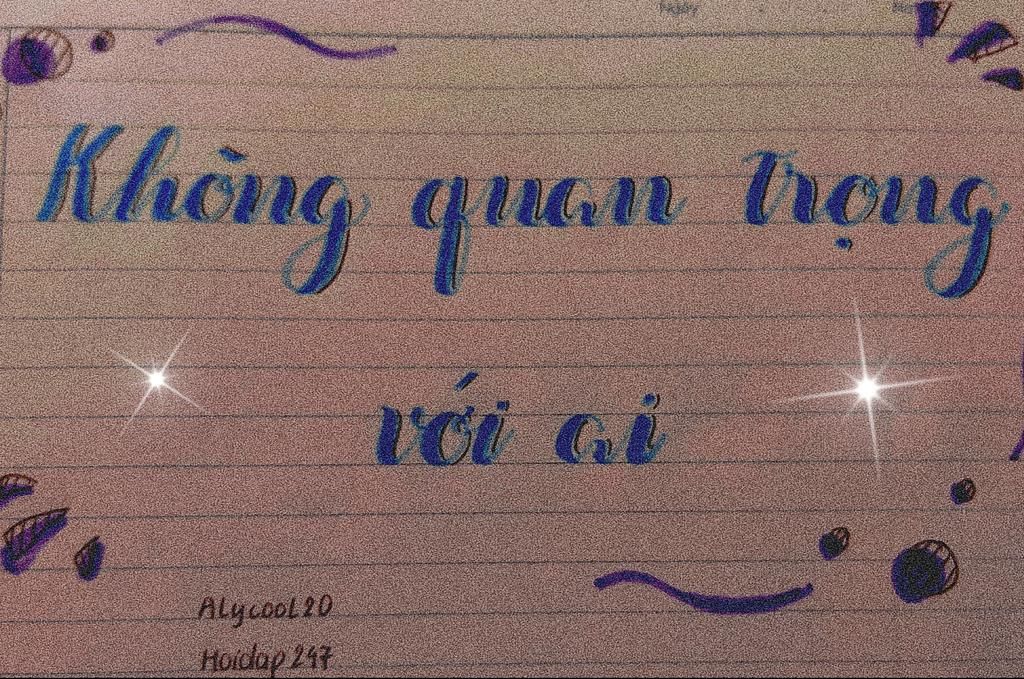 Ngày
Không quan trọng
với ai
Alycool20
Hoidap247